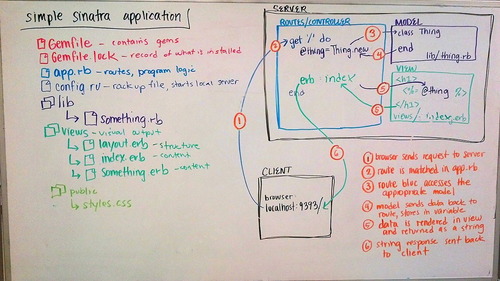 simple sinatra application
Gemfile - contains gems
Gemfile.lock - record of what is installed
app.rb - routes, program logic
config.ru - rackup file, starts local server
lib
something.rb
views - visual output
layout.erb - structure
index.erb - content
something.erb - content
public
styles.css
SERVER
ROUTES/CONTROLLER
get '/' do
@thing = Thing.new
erb :index
end
MODEL
class Thing
end
lib/thing.rb
VIEW
<h1>
<%= @thing %>
</h1>
views/index.erb
1
2
3
4
5
5
6
CLIENT
browser
localhost:9393/
1 browser sends request to server
2 route is matched in app.rb
3 route bloc accesses the
appropriate model
4 model sends data back to
route, stores in variable
5 data is rendered in view
and returned as a string
6 string response sent back
to client